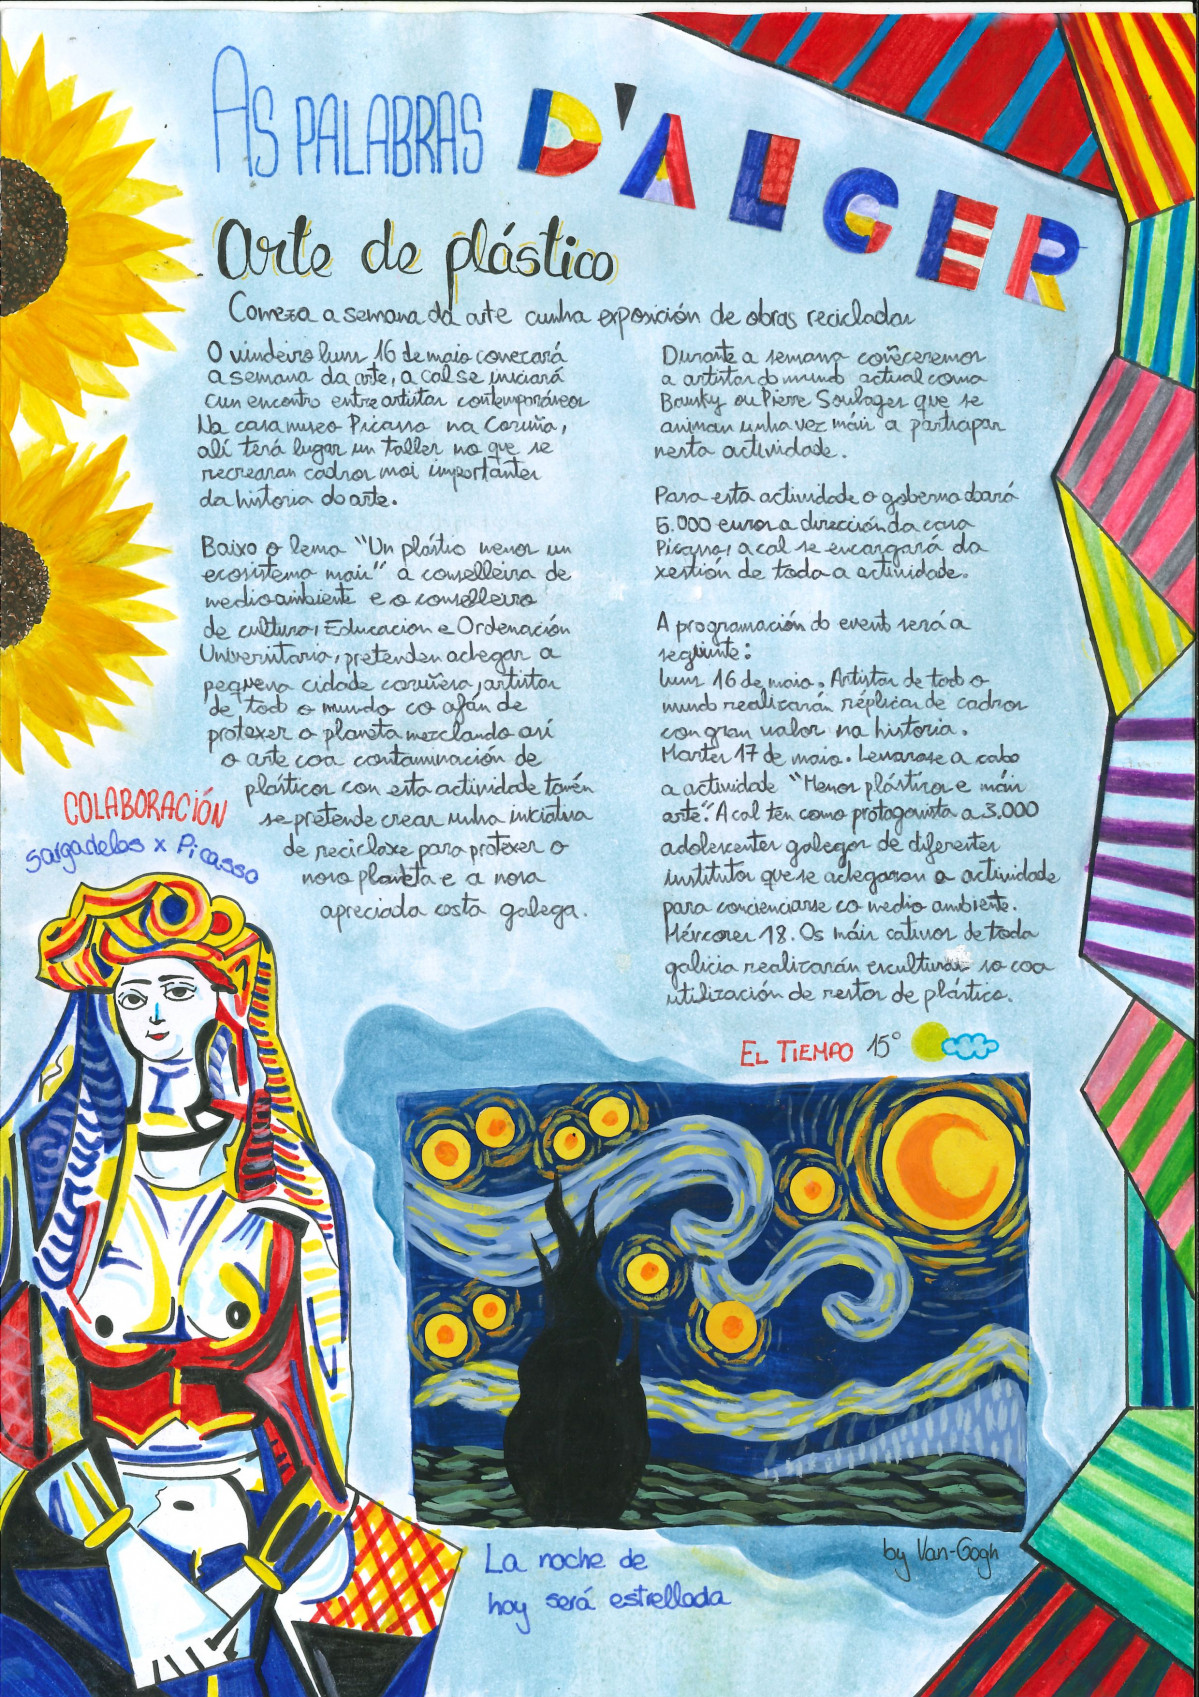 AS PALABRAS D'ALGER
Arte de plástico
Comeza a semana da arte cunha exposición de obras recicladas
O vindeiro luns 16 de maio comezará
a semana da arte, a cal se iniciará
cun encontro entre artistas contemporáneos
Na casa museo Picasso na Coruña,
alí terá lugar un taller no que se
recrearan cadros moi importantes
da historia do arte.
Baixo o lema "Un plástio menos un
ecosistema mais" a conselleira de
medioambiente e o conselleiro
de cultura, Educacion e Ordenación
Universitaria, pretenden achegar a
pequena cidade coruñesa, artistas
de todo o mundo co afán de
protexer o planeta mezclando así
o arte coa contaminación de
plásticos con esta actividade tamén
se pretende crear unha iniciativa
de reciclaxe para protexer o
noso planeta e a nosa
apreciada costa galega.
Durante a semana coñeceremos
a artistas do mundo actual como
Bansky ou Pierre Soulages que se
animan unha vez máis a participar
nesta actividade.
Para esta actividade o goberno doará
5.000 euros a dirección da casa
Picasso, a cal se encargará da
xestión de toda a actividade.
A programación do evento será a
seguinte:
luns 16 de maio. Artistas de todo o
mundo realizarán réplicas de cadros
con gran valor na historia.
Martes 17 de maio. Levarase a cabo
a actividade "Menos plásticos e máis
arte". A cal ten como protagonista a 3.000
adolescentes galegos de diferentes
institutos que se achegaran a actividade
para concienciarse co medio ambiente.
Mércores 18. Os máis cativos de toda
galicia realizarán esculturas so coa
utilización de restos de plástico.
COLABORACIÓN
Sargadelos x Picasso
EL TIEMPO 15°
by Van-Gogh
La noche de
hoy será estrellada